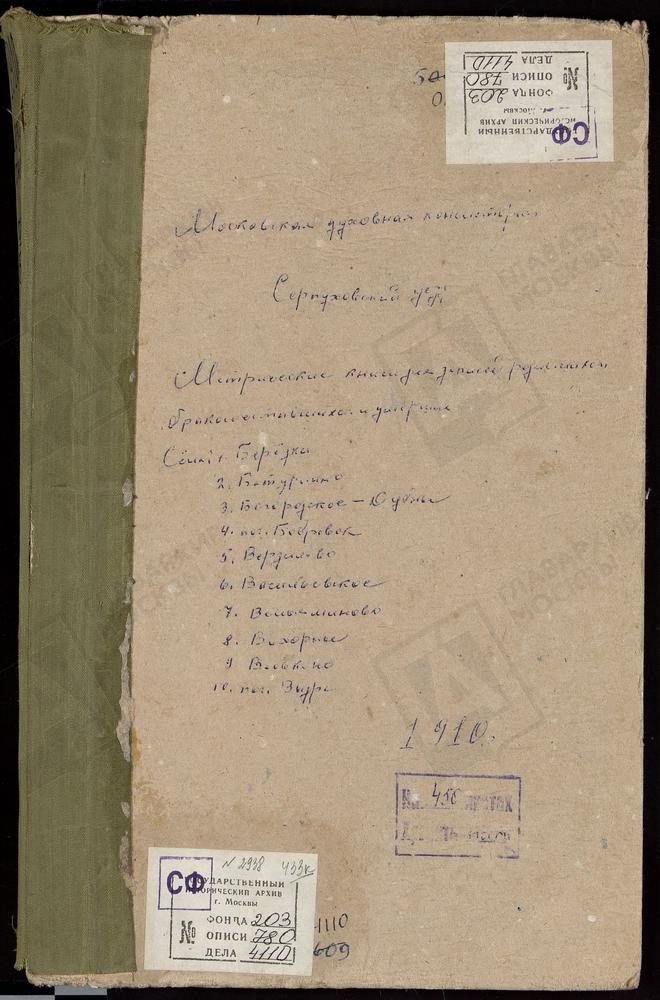 ДЕЛА 4110
№ ОПИСИ 780
ФОНДА 203
г. Москвы
ИСТОРИЧЕСКИЙ АРХИВ
ГОСУДАРСТВЕННЫЙ
СФ
Московская духовная консистория
Серпуховский уезд
Метрические книги для записей родившихся
бракосочетавшихся и умерших
Сёла: 1. Берёзки
2. Батурино
3. Богородское - Дубны
4. пог. Бобровок
5. Верзилово
6. Васильевское
7. Вельяминово
8. Вихорны
9. Вовкино
10. пог. Выдри
1910
450
СФ
N 2938
433к
ГОСУДАРСТВЕННЫЙ
ИСТОРИЧЕСКИЙ АРХИВ
г. Москвы
ФОНДА 203
№ ОПИСИ 780
ДЕЛА 4110
4110
609
ГЛАВАРХИВ
МОСКВЫ